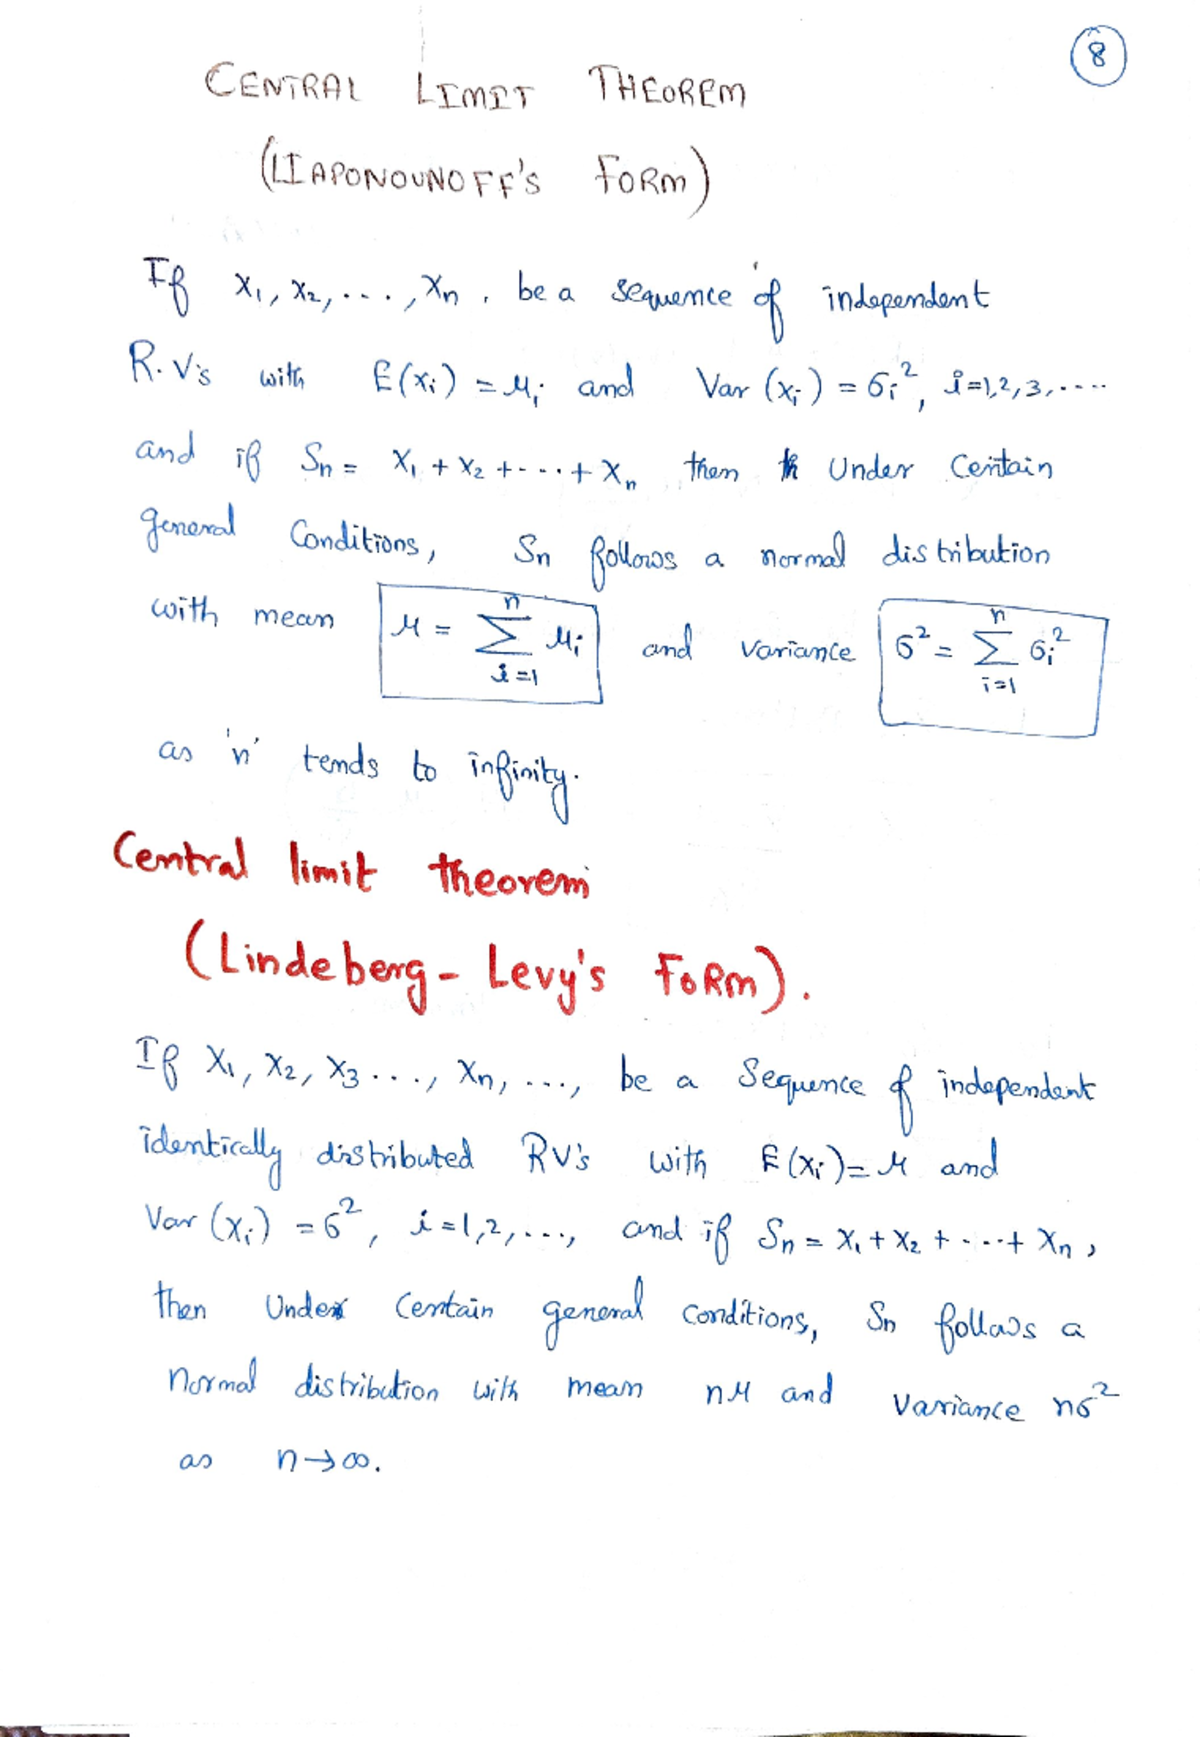 8
CENTRAL LIMIT THEOREM
(LIAPONOUNOFF'S FORM)
If X₁, X₂, ..., Xn, be a sequence of independent
R.V's with E(Xi) = μi and Var (Xi) = σi², i=1,2,3,....
and if Sn = X₁ + X₂ +---+ Xn then th Under Certain
general Conditions, Sn follows a normal distribution
with mean μ = n∑i=1 μi and variance σ² = n∑i=1 σi²
as 'n' tends to infinity.
Central limit theorem
(Lindeberg - Levy's FoRm).
If X₁, X₂, X3 ..., Xn, ..., be a Sequence of independent
identically distributed RV's with E(Xi)= μ and
Var (Xi) = σ², i=1,2,..., and if Sn = X₁ + X₂ + ---+ Xn,
then Under Certain general conditions, Sn follows a
normal distribution with mean nμ and Variance nσ²
as n→∞.